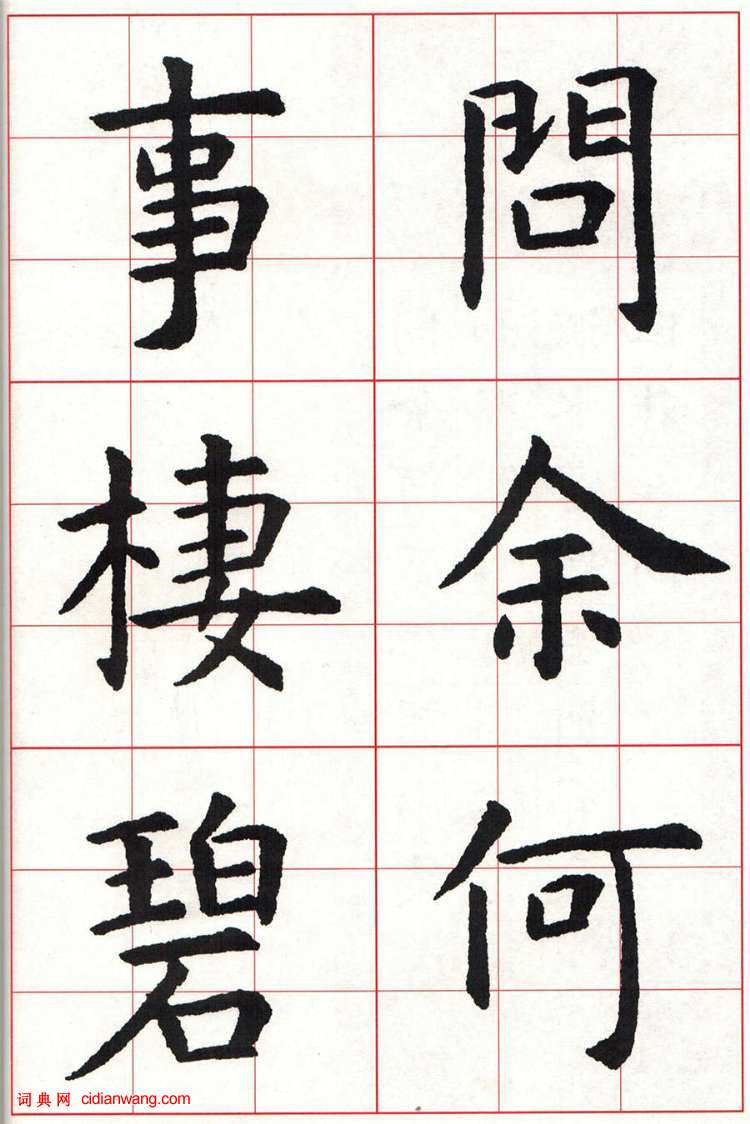 問余何
事棲碧
词典网 cidianwang.com